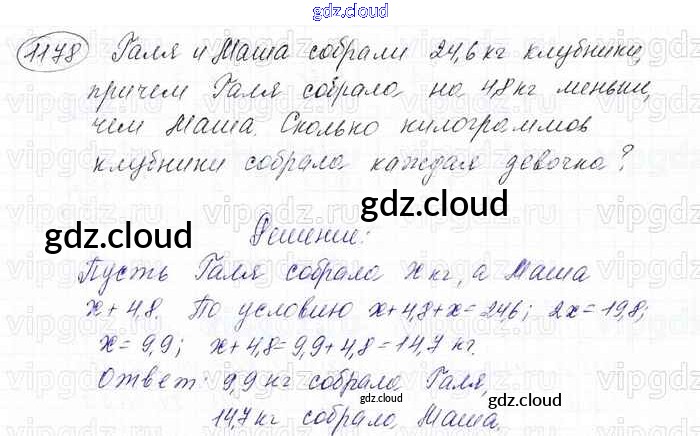 gdz.cloud
1178 Галя и Маша собрали 24,6 кг клубники,
причем Галя собрала на 4,8 кг меньше,
чем Маша. Сколько килограммов
клубники собрала каждая девочка?
gdz.cloud
gdz.cloud
Решение:
Пусть Галя собрала x кг, а Маша
x + 4,8. По условию x+4,8+x=24,6; 2x=19,8;
x=9,9; x+4,8=9,9+4,8=14,7 кг.
Ответ: 9,9 кг собрала Галя,
gdz.cloud
gdz.cloud
14,7 кг собрала Маша.